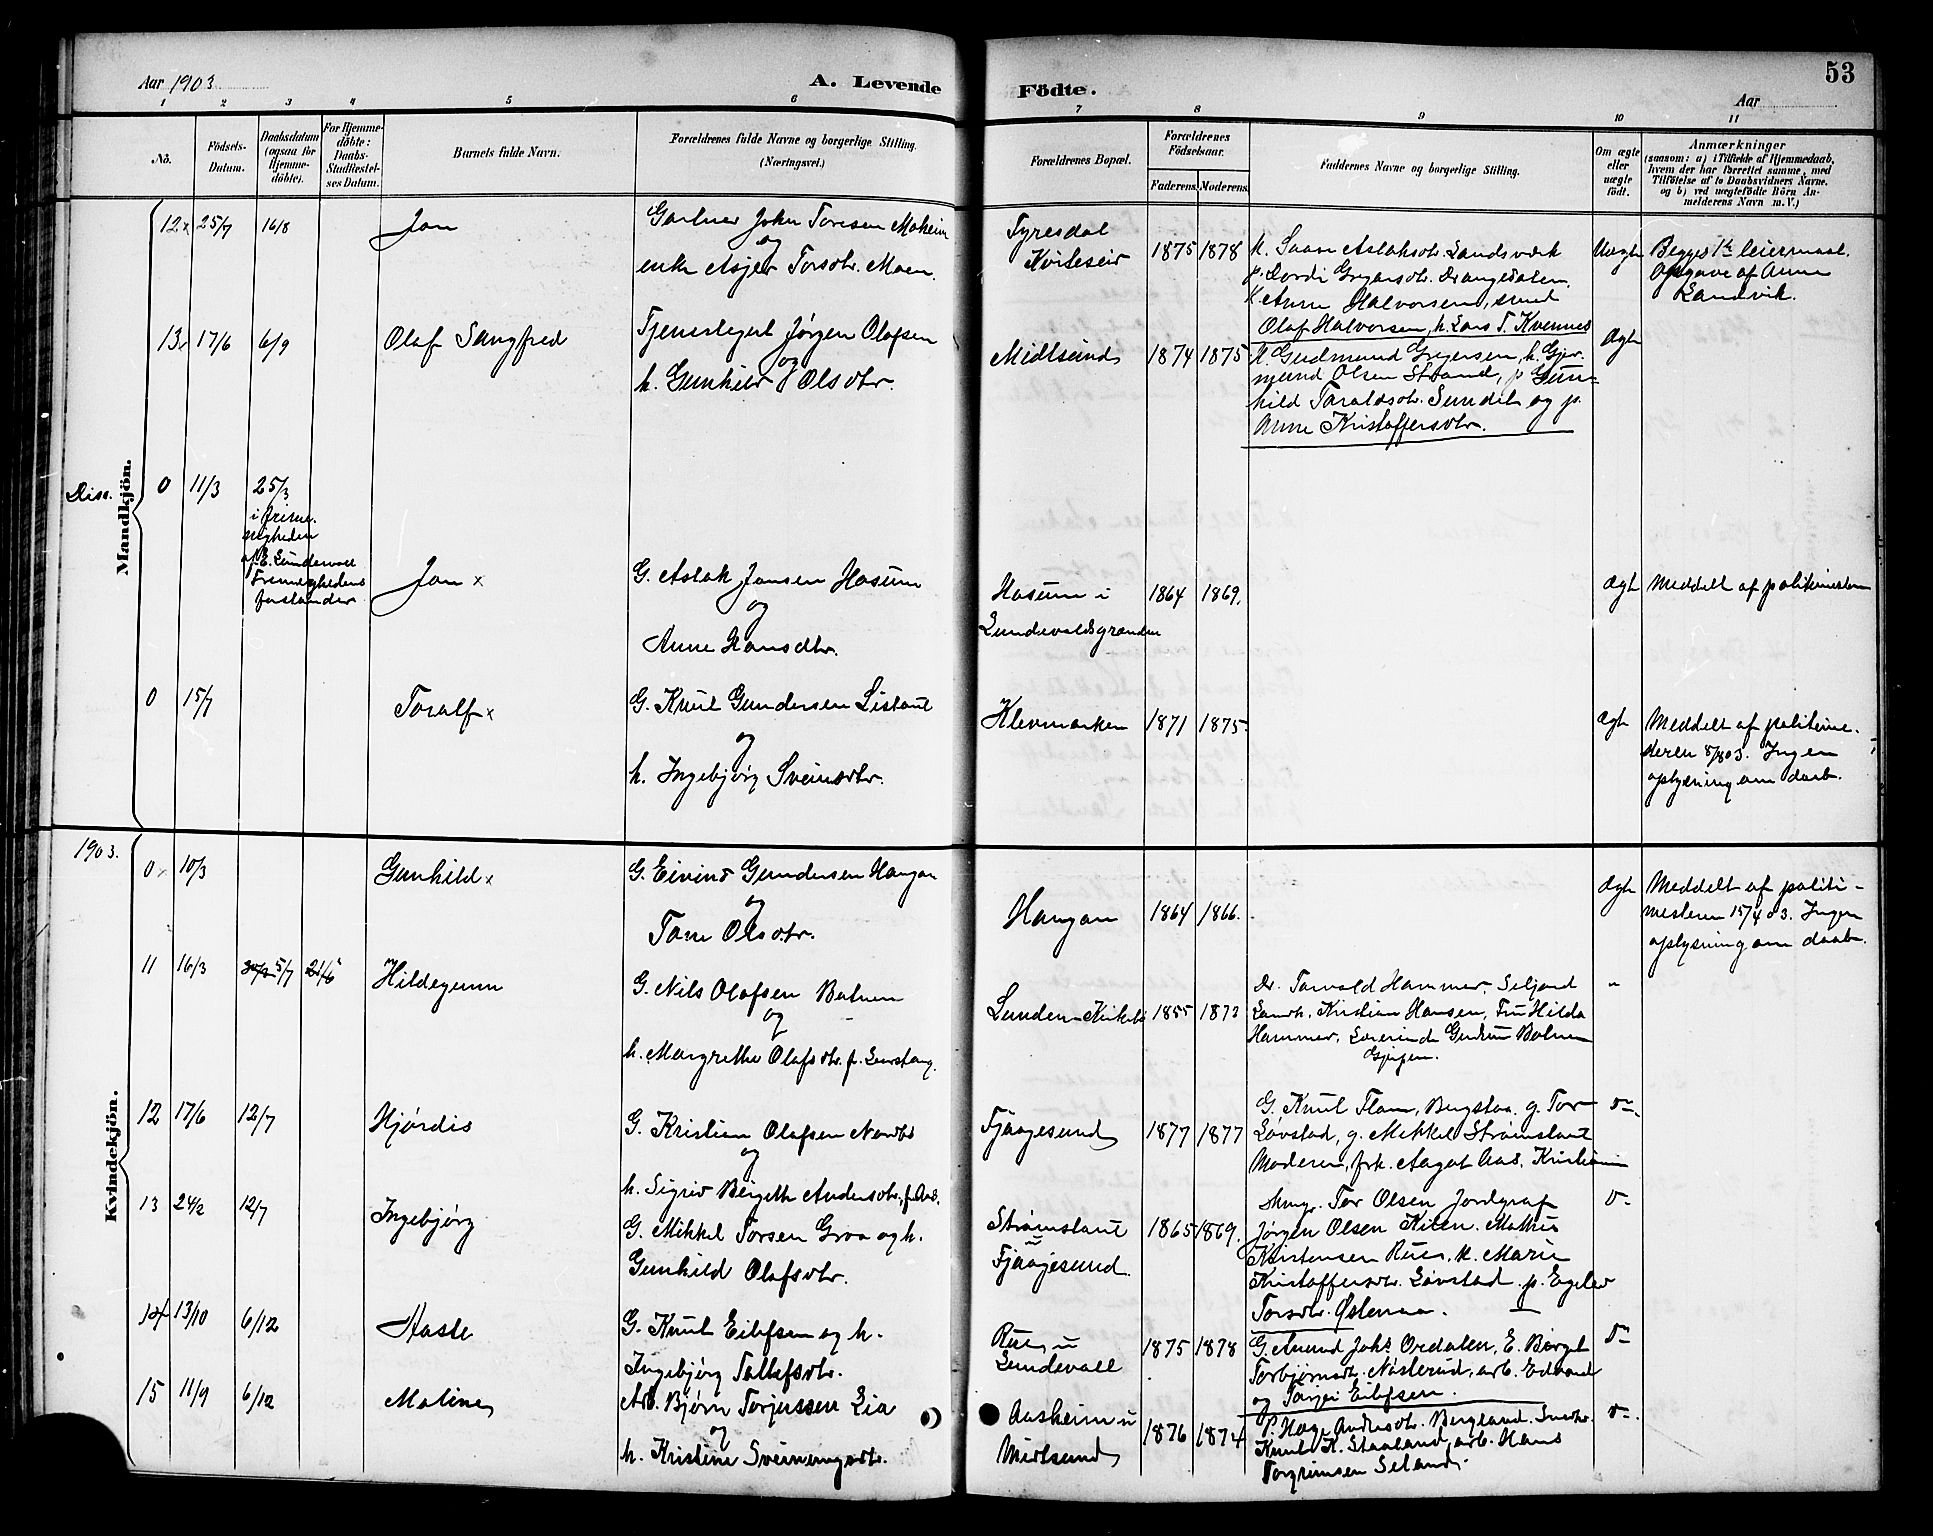 Aar 1903
A. Levende
Födte.
53
Aar
1 2 3 4 5 6 7 8 9 10 11
No.
Födsels-
Datum.
Daabsdatum
(ogsaa for
Hjemme-
döbte).
For Hjemme-
döbte:
Daabs-
Stadfæstel-
ses Datum.
Barnets fulde Navn.
Forældrenes fulde Navne og borgerlige Stilling.
(Næringsvei.)
Forældrenes Bopæl.
Forældrenes
Födselsaar.
Faderens.
Moderens.
Faddernes Navne og borgerlige Stilling.
Om ægte
eller
uægte
födt.
Anmærkninger
(saasom: a) i Tilfælde af Hjemmedaab,
hvem der har forrettet samme, med
Tilföielse af to Daabsvidners Navne.
og b) ved uægtefödte Börn An-
melderens Navn m. V.)
Mandkjön.
12x 25/7 16/8 Jon
Gartner John Toresen Moheim
og
enke Asjer Torsdtr. Moen.
Tyresdal
Kviteseid
1875 1878
k. Saave Aslaksdtr. Landsværk
p. Gregarsdtr. Drangedalen.
K. Anne Halvorsen, smed
Olaf Halvorsen, h. Lars T. Kvennes
Uægte
Begges 1ste leiermaal.
Opgave af Anne
Landvik.
13. 17/6 6/9 Olaf Sangfred
Tjenerlignet Jørgen Olafsen
og
h. Gunhild Olsdtr.
Midtsund
1874 1875
K. Gudmund Gregersen, k. Gjer-
mund Olsen Strand, p Gun-
hild Taraldsdtr. Sundet og p.
Anne Kristoffersdtr.
Ægte
Diss. 0 11/3 25/3
i frime-
nigheden
af E. Lundevall
Frimenighedens
forstander
Jon x
G. Aslak Jonsen Hosum
og
Anne Hansdtr.
Hosum i
Lundevaldsgranden
1864 1869.
Ægte
Meddelt af politimesteren
0 15/7 Toralf x
G. Knut Gundersen Listaul
og
h. Ingebjørg Sveinsdtr.
Klevmarken
1871 1875.
Ægte
Meddelt af politime-
steren 8/8 03. Ingen
oplysning om daab.
1903.
Kvindekjön.
0x 10/3 Gunhild x
G. Eivind Gundersen Haugan
og
Tone Olsdtr.
Haugan
1864 1866.
Ægte
Meddelt af politi-
mesteren 15/4 03. Ingen
oplysning om daab.
11 16/3 5/7 21/5 Hildegunn
G. Nils Olafsen Batnem
og
h. Margrethe Olafsdtr. f. Lurstang.
Lunden Kirkebø
1855 1873
Dr. Torvald Hammer. Seljord
Landh. Kristian Hansen, Fru Hilda
Hammer, Lærerinde Gudrun Batnem
Gjerpen.
"
12 17/6 12/7 Hjørdis
G. Kristian Olafsen Nordbø
og
h. Sigrid Bergette Andersdtr. f. Aas.
Fjaagesund
1877 1877
G. Knut Flom, Bergstaa. g. Tor
Løvstad, g. Mikkel Strømstaul
Moderen, frk. Aagot Aas. Kristiania
13 24/2 12/7 Ingebjørg
G. Mikkel Torsen Groa og h.
Gunhild Olafsdtr.
Strømstaul
u
Fjaagesund.
1865 1869.
Ungk. Tor Olsen Jordgraf
Jørgen Olsen Kiten. Mathis
Kristensen Rue, k. Marie
Kristoffersdtr. Løvstad. p. Egeler
Torsdtr. Østenaa.
14 13/10 6/12 Aaste
G. Knut Eilefsen og h.
Ingebjørg Tallefsdtr.
Rue u
Lundevall
1875 1878
G. Amund Johs Ordalen, E. Børgit
Torbjørnsdtr. Nøsterud, arb. Edvard
og Torjer Eilefsen.
15 11/9 6/12 Moline
Arb. Bjørn Torjussen Lia
og
h. Kristine Sveinungsdtr.
Aasheim u
Midtsund
1876 1874
P. Hæge Andersdtr. Bergland. Snedkr.
Knut K. Staaland, arb. Hans
Torgrimsen Seland.